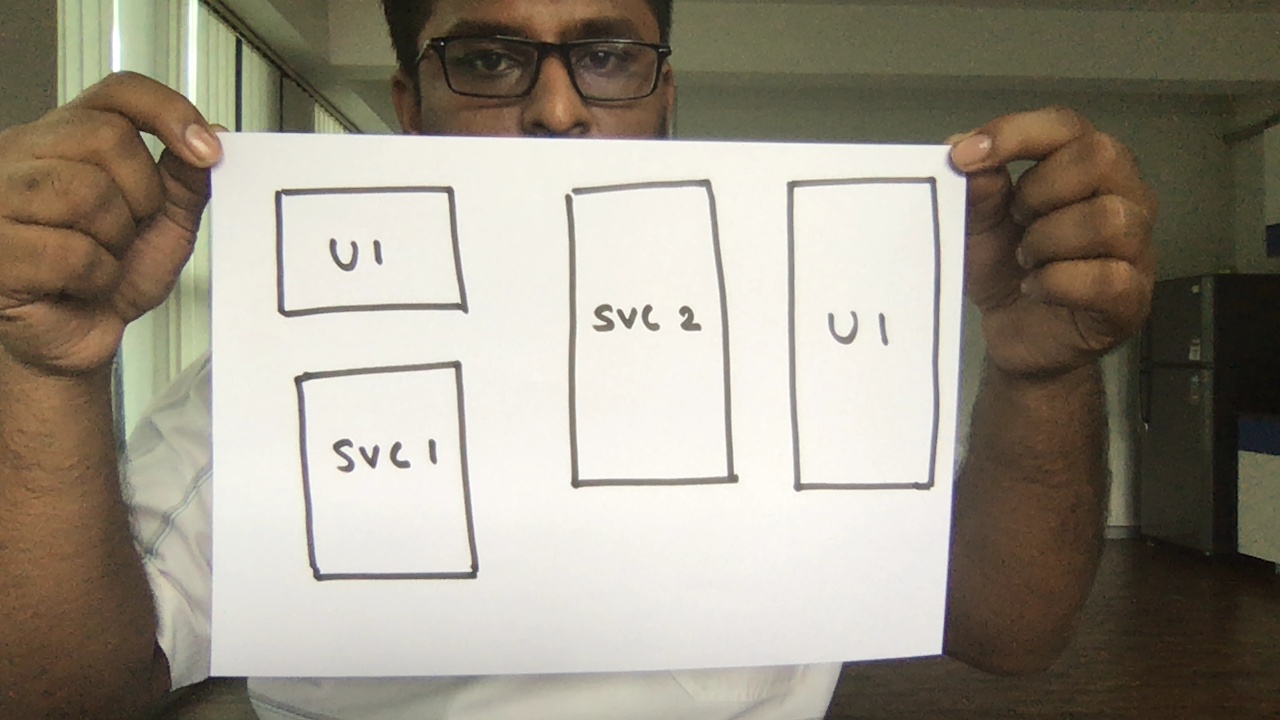 UI
SVC 1
SVC 2
UI